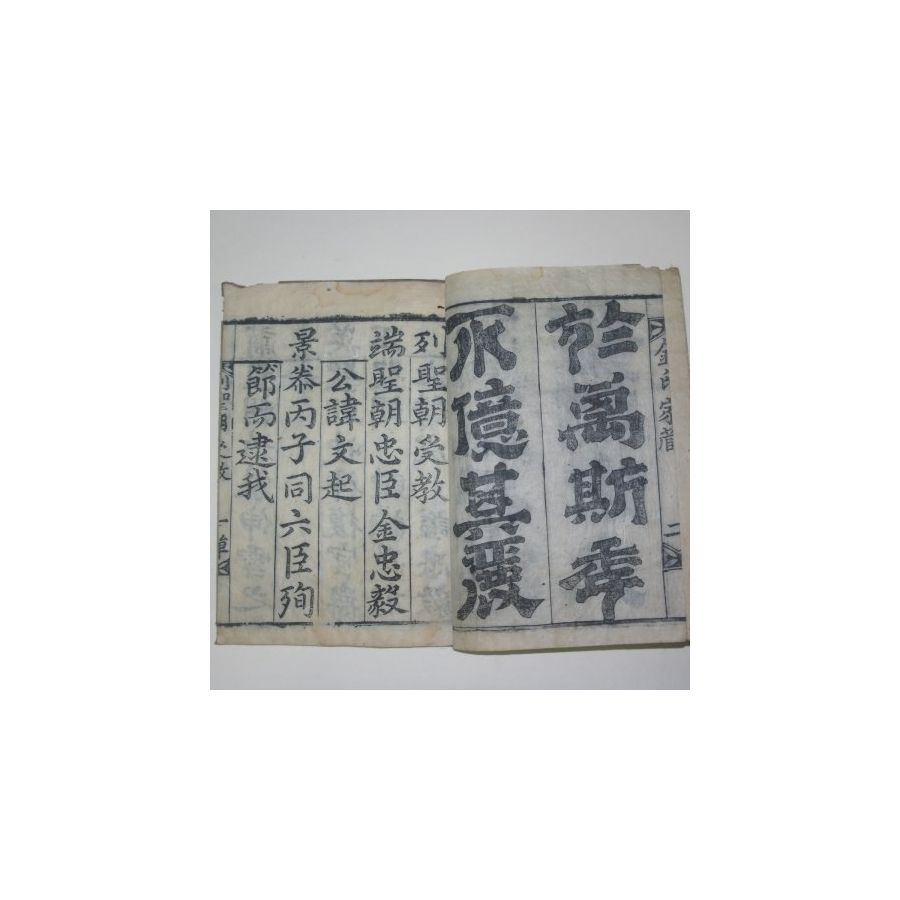 金氏家譜 二
於萬斯年
不億其麗
列聖朝受教
端聖朝忠臣金忠毅
公諱文起
景泰丙子同六臣殉
節而逮我
列聖朝受教 一章